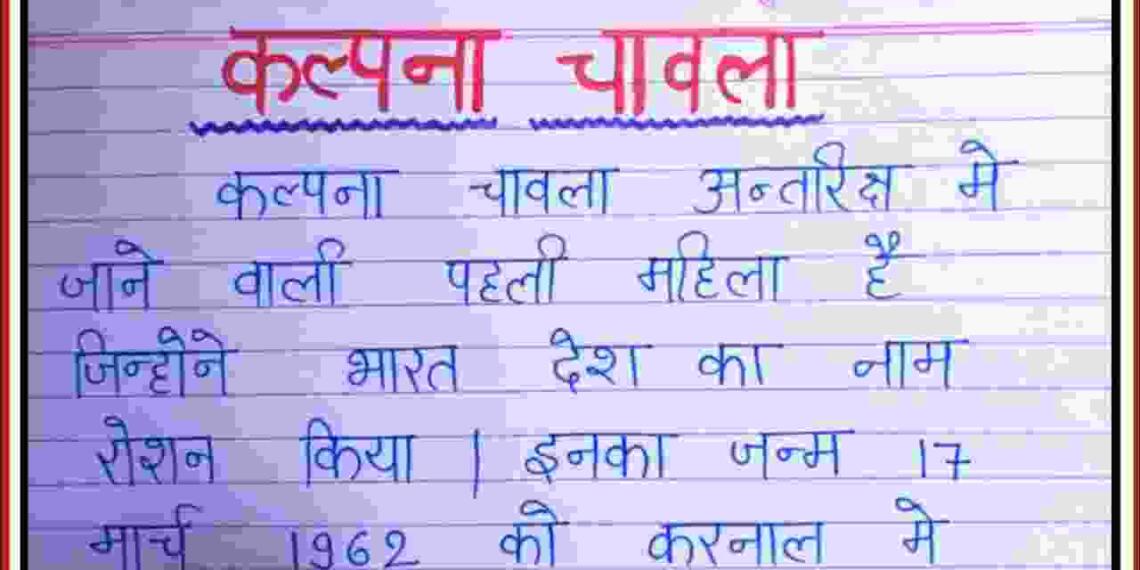 कल्पना चावला
कल्पना चावला अन्तरिक्ष मे
जाने वाली पहली महिला है
जिन्होने भारत देश का नाम
रोशन किया । इनका जन्म 17
मार्च 1962 को करनाल मे